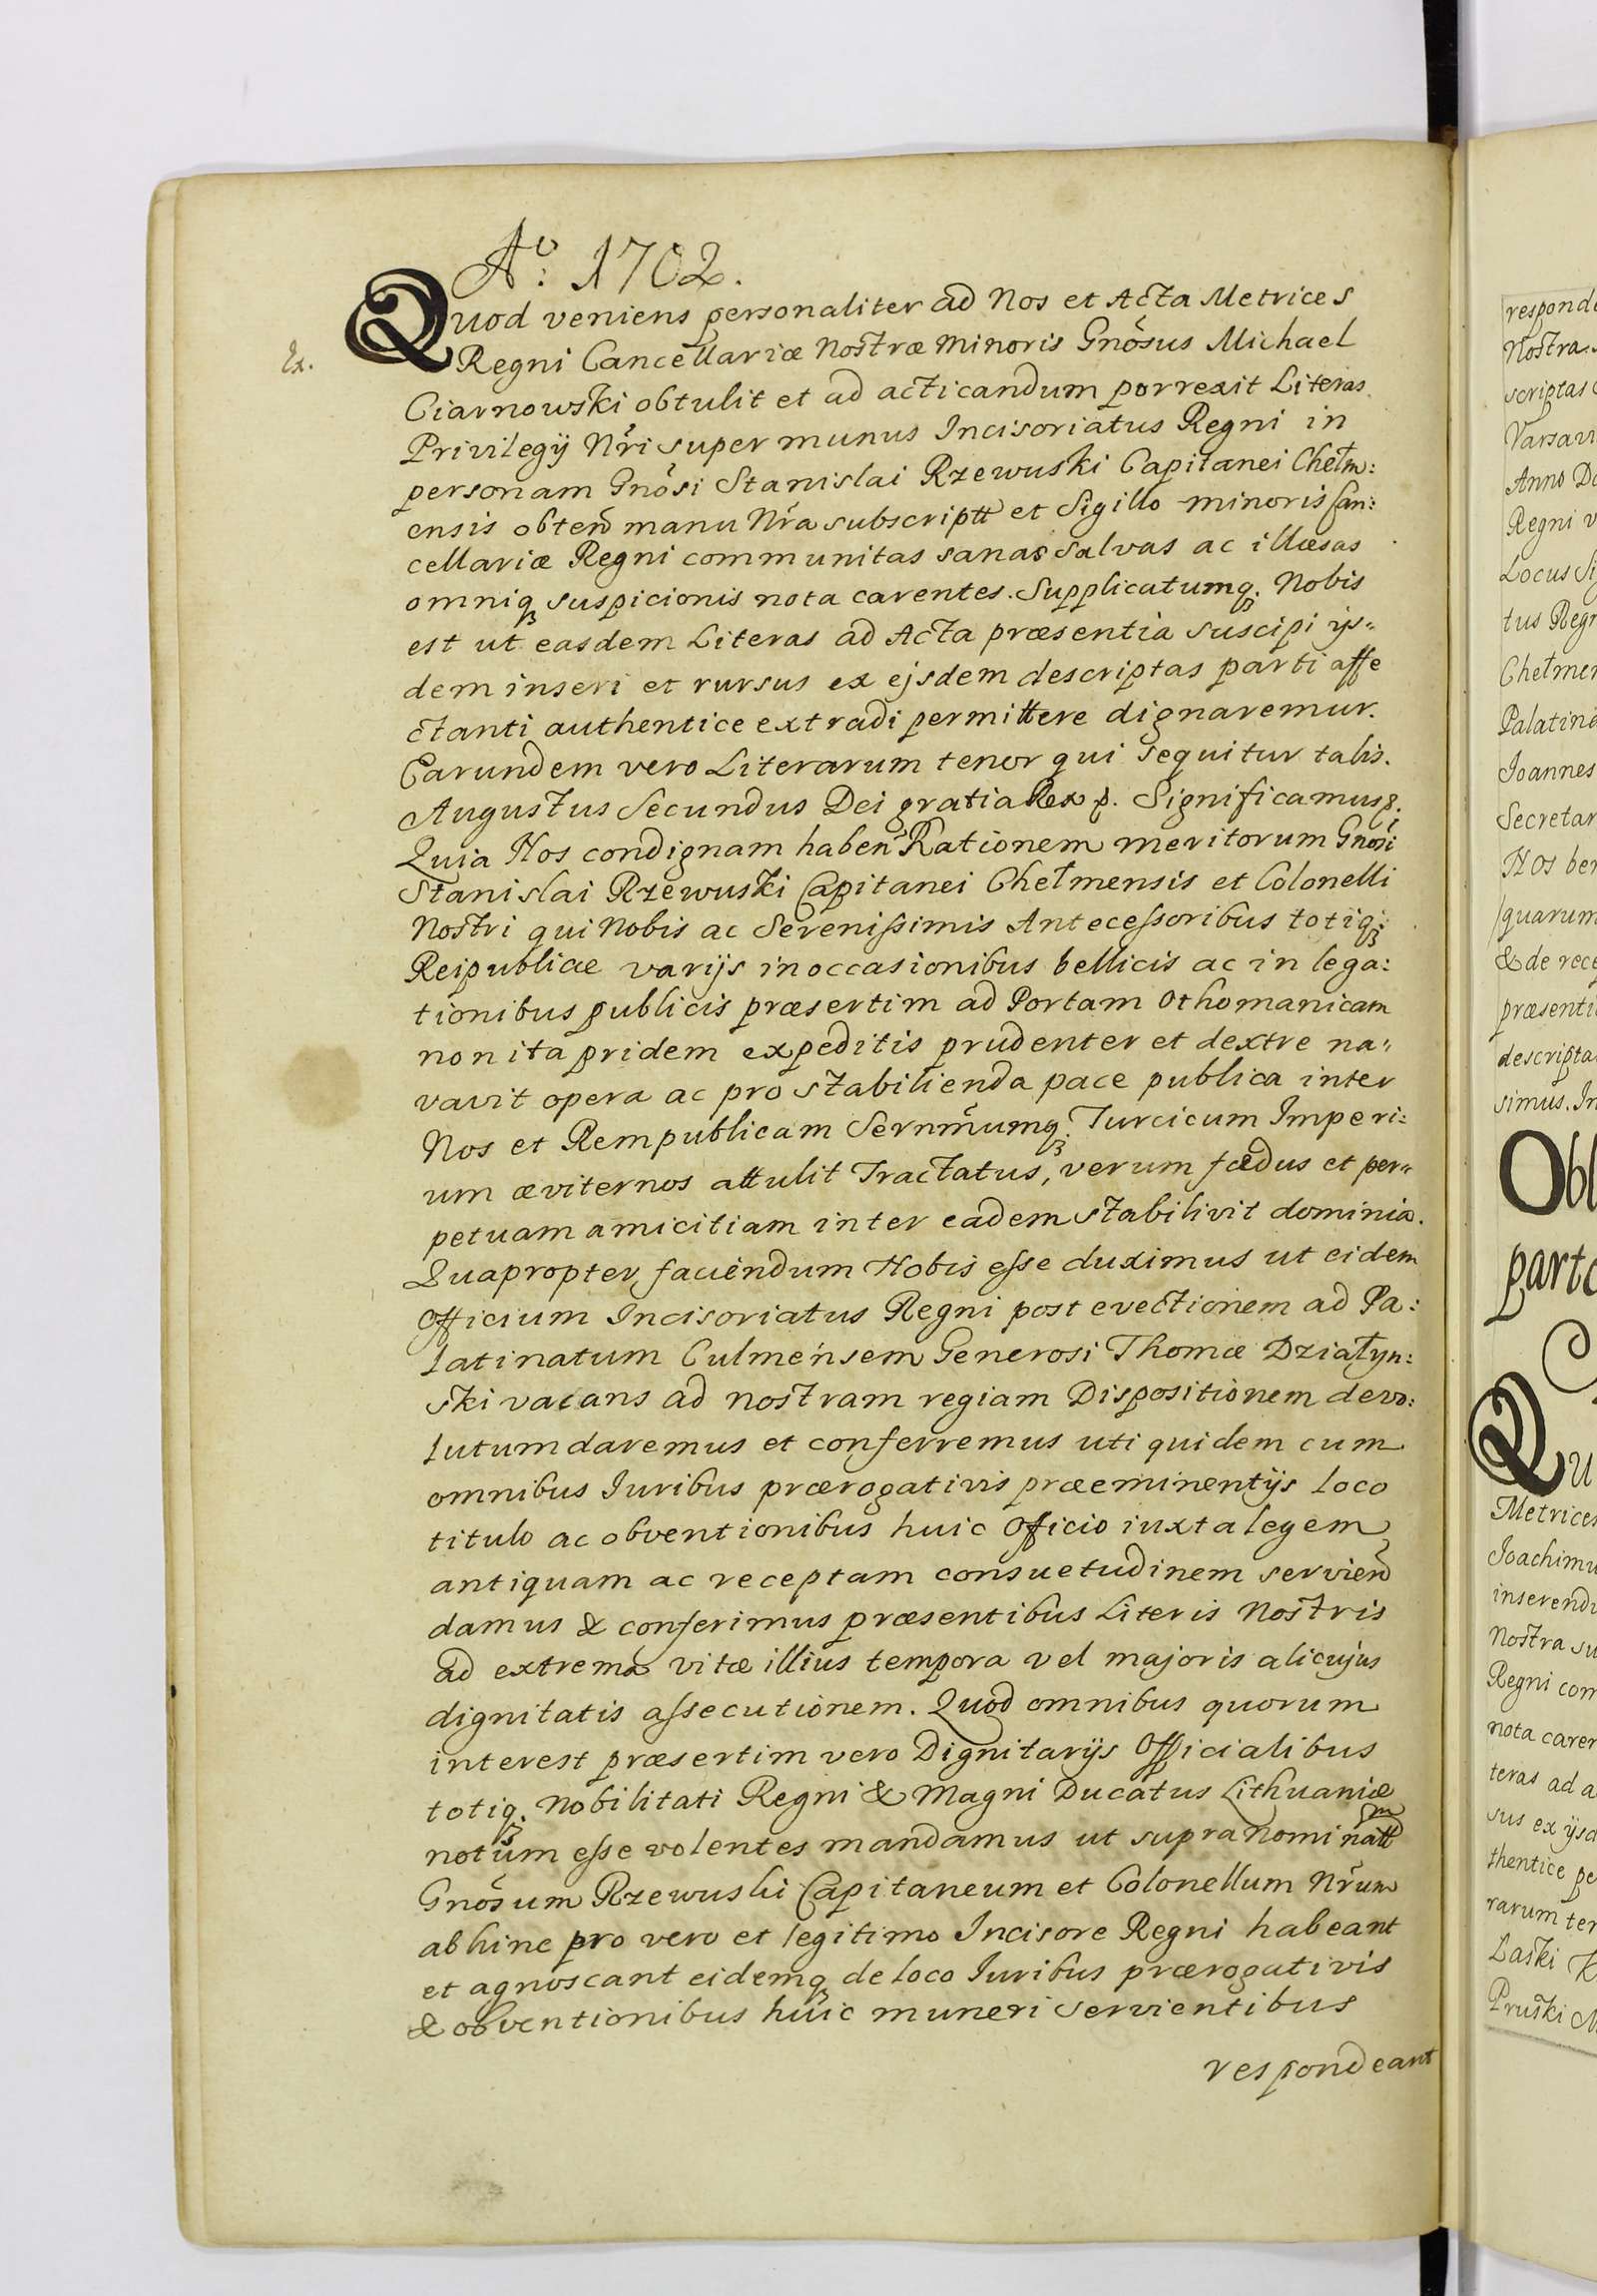 Aº: 1702.
Ex.
Quod veniens personaliter ad Nos et Acta Metrices
Regni Cancellariæ Nostræ Minoris Gnõsus Michael
Ciarnowski obtulit et ad acticandum porrexit Literas
Privilegij Nr̃i super munus Incisoriatus Regni in
personam Gnõsi Stanislai Rzewuski Capitanei Chełm:
ensis obteñ manu Nr̃a subscriptt et Sigillo minoris Can:
cellariæ Regni communitas sanas salvas ac illæsas
omniq₃ suspicionis nota carentes. Supplicatumq₃. Nobis
est ut easdem Literas ad Acta præsentia suscipi ijs=
dem inseri et rursus ex ejsdem descriptas parti affe
ctanti authentice extradi permittere dignaremur.
Earundem vero Literarum tenor qui sequitur talis.
Augustus Secundus Dei gratia Rex p. Significamus p.
Quia Nos condignam habeñ Rationem meritorum Gnõsi
Stanislai Rzewuski Capitanei Chełmensis et Colonelli
Nostri qui Nobis ac Serenissimis Antecessoribus totiq₃:
Reipublicæ varijs in occasionibus bellicis ac in lega:
tionibus publicis præsertim ad Portam Othomanicam
non ita pridem expeditis prudenter et dextre na=
vavit opera ac pro stabilienda pace publica inter
Nos et Rempublicam Sernm̃umq₃: Turcicum Imperi:
um æviternos attulit Tractatus, verum fædus et per=
petuam amicitiam inter eadem stabilivit dominia.
Quapropter faciendum Nobis esse duximus ut eidem
Officium Incisoriatus Regni post evectionem ad Pa:
latinatum Culmensem Generosi Thomæ Działyn:
ski vacans ad nostram regiam Dispositionem devo:
lutum daremus et conferremus uti quidem cum
omnibus Iuribus prærogativis præeminentijs loco
titulo ac obventionibus huic Officio iuxta legem
antiquam ac receptam consuetudinem servieñ
damus & conferimus præsentibus Literis Nostris
ad extrema vitæ illius tempora vel majoris alicujus
dignitatis assecutionem. Quod omnibus quorum
interest præsertim vero Dignitarijs Officialibus
totiq₃. Nobilitati Regni & Magni Ducatus Lithuaniæ
notum esse volentes mandamus ut supra Nominattm
Gnõsum Rzewuski Capitaneum et Colonellum Nr̃um
ab hinc pro vero et legitimo Incisore Regni habeant
et agnoscant eidemq₃ de loco Iuribus prærogativis
& obventionibus huic muneri servientibus
respondeant
responde
Nostra
scriptas
Varsavi
Anno Do
Regni v
Locus Si
tus Regn
Chełmen
Palatine
Joannes
Secretar
Nos ben
quarum
& de rece
præsenti
descripta
simus. In
Obl
parto
Qu
Metrices
Joachimu
inserendu
Nostra su
Regni com
nota caren
teras ad a
sus ex ijsd
thentice pe
rarum ten
Laski K
Pruski M